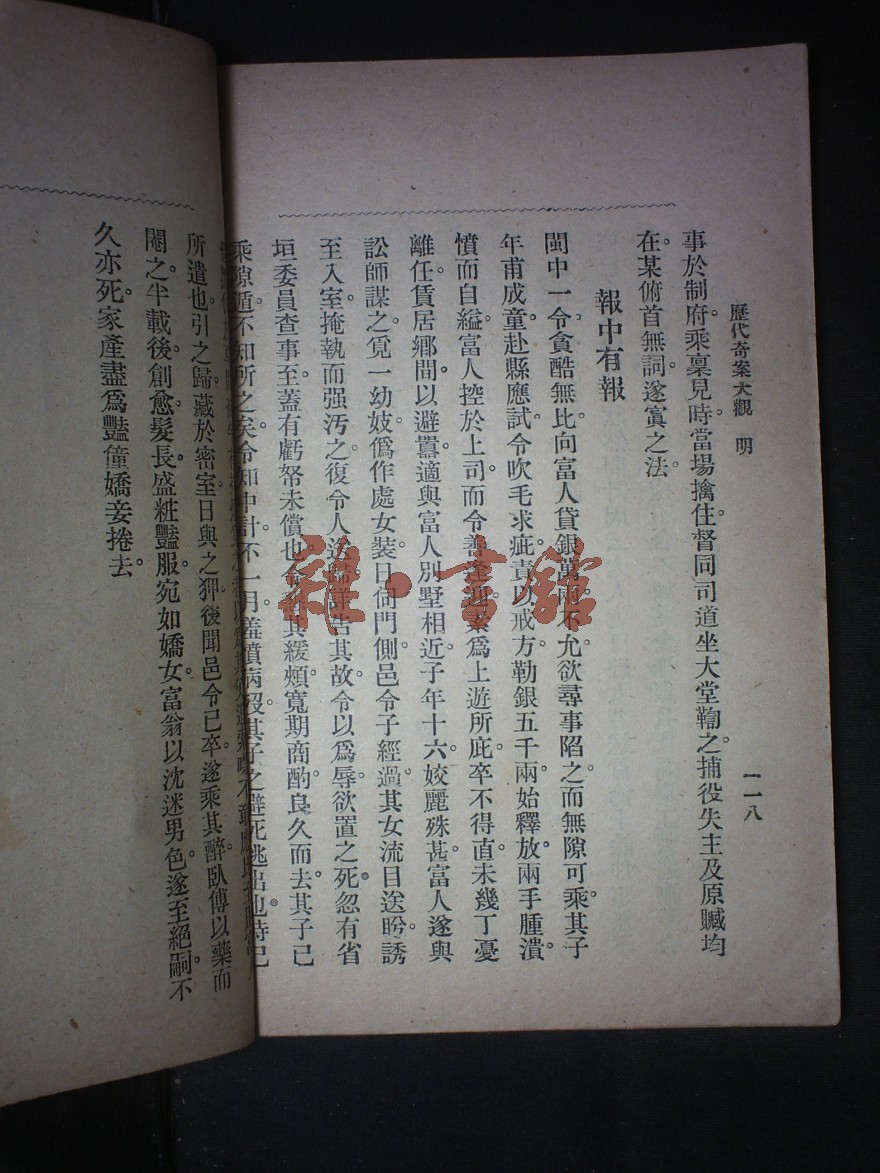 歷代奇案大觀　明
一一八
事於制府。乘稟見時。當場擒住。督同司道坐大堂鞫之。捕役失主及原贓均
在。某俯首無詞。遂寘之法。
報中有報
閩中一令貪酷無比。向富人貸銀萬兩。不允。欲尋事陷之。而無隙可乘。其子
年甫成童。赴縣應試。令吹毛求疵。責以戒方。勒銀五千兩。始釋放。兩手腫潰。
憤而自縊。富人控於上司。而令善逢迎。素爲上遊所庇。卒不得直。未幾丁憂
離任。賃居鄉間以避囂。適與富人別墅相近。子年十六。姣麗殊甚。富人遂與
訟師謀之。覓一幼妓。僞作處女裝。日伺門側。邑令子經過。其女流目送盼。誘
至入室。掩執而强汚之。復令人送歸。詳告其故。令以爲辱。欲置之死。忽有省
垣委員查事至。蓋有虧帑未償也。令 其緩頰寬期。商酌良久而去。其子已
乘隙遁。不知所之矣。令知中計。不一月。羞憤病沒。其子之避死逃出也。時已
所遣也。引之歸。藏於密室。日與之狎。後聞邑令已卒。遂乘其醉臥。傅以藥而
閹之。半載後。創愈髮長。盛粧豔服。宛如嬌女。富翁以沈迷男色。遂至絕嗣。不
久亦死。家產盡爲豔僮嬌妾捲去。
雜·書館